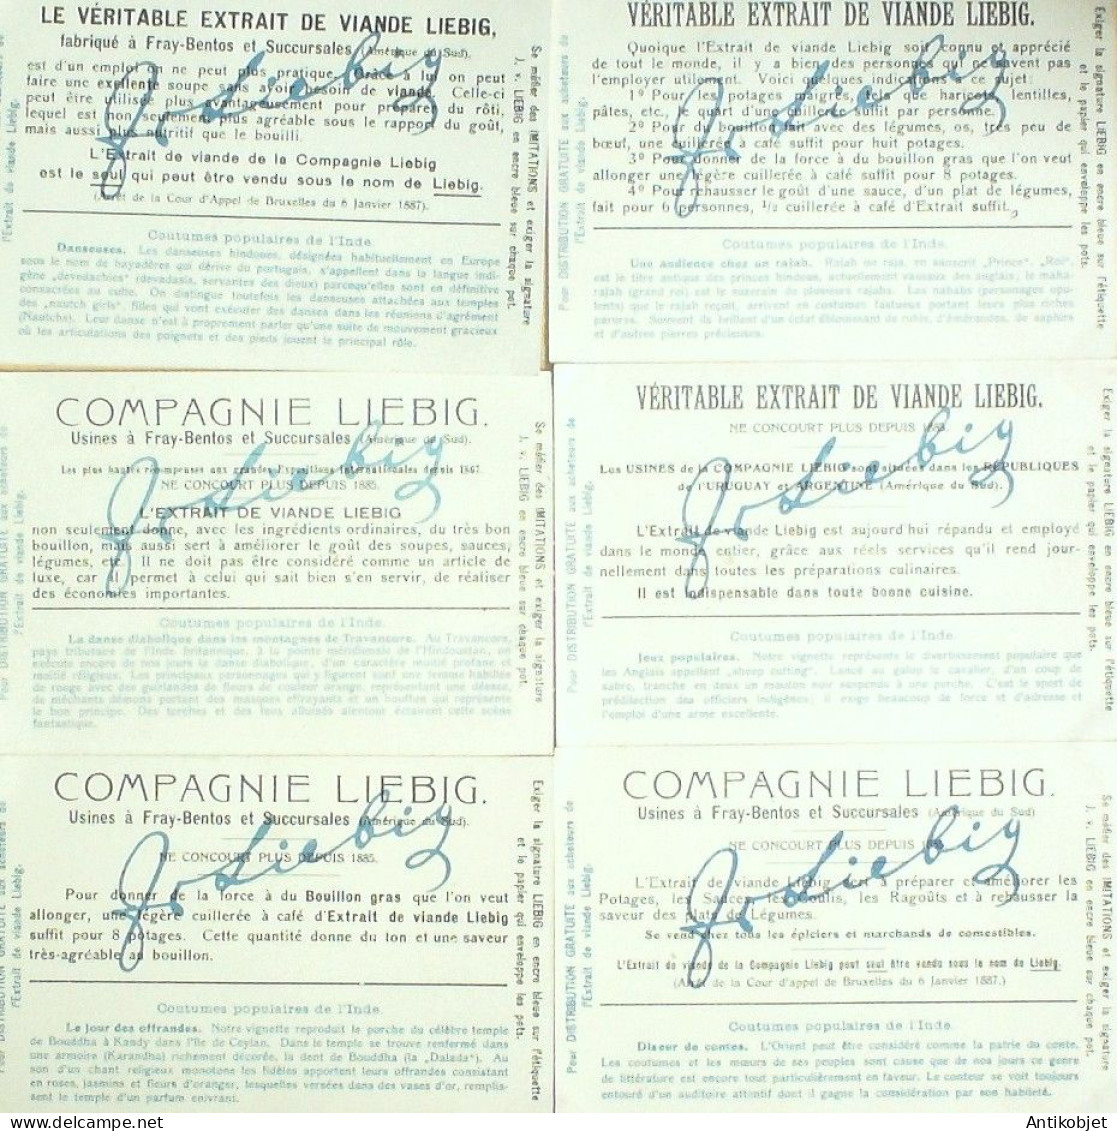 LE VÉRITABLE EXTRAIT DE VIANDE LIEBIG,
fabriqué à Fray-Bentos et Succursales (Amérique du Sud),
est d'un emploi on ne peut plus pratique. Grâce à lui on peut
faire une exellente soupe sans avoir besoin de viande. Celle-ci
peut être utilisée plus avantageusement pour préparer du rôti,
lequel est non seulement plus agréable sous le rapport du goût,
mais aussi plus nutritif que le bouilli.
L'Extrait de viande de la Compagnie Liebig
est le seul qui peut être vendu sous le nom de Liebig.
(Arrêt de la Cour d'Appel de Bruxelles du 6 Janvier 1887).
Coutumes populaires de l'Inde.
Danseuses. Les danseuses hindoues, désignées habituellement en Europe
sous le nom de bayadères qui dérive du portugais, s'appellent dans la langue indi-
gène „devedachies" (devadasis, servantes des dieux) parcequ'elles sont en définitive
consacrées au culte. On distingue toutefois les danseuses attachées aux temples
des „nautch girls" filles qui vont exécuter des danses dans les réunions d'agrément
(Nautchs). Leur danse n'est à proprement parler qu'une suite de mouvement gracieux
où les articulations des poignets et des pieds jouent le principal rôle.
l'Extrait de viande Liebig.
Se méfier des IMITATIONS et exiger la signature
J. v. LIEBIG en encre bleue sur chaque pot.
Jv Liebig
VÉRITABLE EXTRAIT DE VIANDE LIEBIG.
Quoique l'Extrait de viande Liebig soit connu et apprécié
de tout le monde, il y a bien des personnes qui ne savent pas
l'employer utilement. Voici quelques indications à ce sujet:
1º Pour les potages maigres, tels que haricots, lentilles,
pâtes, etc., le quart d'une cuillerée suffit par personne.
2º Pour du bouillon fait avec des légumes, os, très peu de
bœuf, une cuillerée à café suffit pour huit potages.
3º Pour donner de la force à du bouillon gras que l'on veut
allonger une légère cuillerée à café suffit pour 8 potages.
4º Pour rehausser le goût d'une sauce, d'un plat de légumes,
fait pour 6 personnes, 1/2 cuillerée à café d'Extrait suffit.
Coutumes populaires de l'Inde.
Une audience chez un rajah. Rajah ou raja, en sanscrit „Prince", „Roi",
est le titre antique des princes hindous, actuellement vassaux des anglais; le maha-
rajah (grand roi) est le suzerain de plusieurs rajahs. Les nababs (personnages opu-
lents) que le rajah reçoit, arrivent en costumes fastueux portant leurs plus riches
parures. Souvent ils brillent d'un éclat éblouissant de rubis, d'émeraudes, de saphirs
et d'autres pierres précieuses.
Pour DISTRIBUTION GRATUITE aux acheteurs de
l'Extrait de viande Liebig.
Exiger la signature LIEBIG en encre bleue sur l'étiquette
et le papier qui enveloppe les pots.
Jv Liebig
COMPAGNIE LIEBIG.
Usines à Fray-Bentos et Succursales (Amérique du Sud)
Les plus hautes récompenses aux grandes Expositions Internationales depuis 1867.
NE CONCOURT PLUS DEPUIS 1885.
L'EXTRAIT DE VIANDE LIEBIG
non seulement donne, avec les ingrédients ordinaires, du très bon
bouillon, mais aussi sert à améliorer le goût des soupes, sauces,
légumes, etc. Il ne doit pas être considéré comme un article de
luxe, car il permet à celui qui sait bien s'en servir, de réaliser
des économies importantes.
Coutumes populaires de l'Inde.
La danse diabolique dans les montagnes de Travancore. Au Travancore,
pays tributaire de l'Inde britannique, à la pointe méridionale de l'Hindoustan, on
exécute encore de nos jours la danse diabolique, d'un caractère moitié profane et
moitié religieux. Les principaux personnages qui y figurent sont une femme habillée
de rouge avec des guirlandes de fleurs de couleur orange, représentant une déesse,
de méchants démons portant des masques effrayants et un bouffon qui représente
le bon principe. Des torches et des feux allumés alentour éclairent cette scène
fantastique.
Pour DISTRIBUTION GRATUITE aux acheteurs de
l'Extrait de viande Liebig.
Se méfier des IMITATIONS et exiger la signature
J. v. LIEBIG en encre bleue sur chaque pot.
Jv Liebig
VÉRITABLE EXTRAIT DE VIANDE LIEBIG.
NE CONCOURT PLUS DEPUIS 1885.
Les USINES de la COMPAGNIE LIEBIG sont situées dans les RÉPUBLIQUES
de l'URUGUAY et ARGENTINE (Amérique du Sud).
L'Extrait de viande Liebig est aujourd'hui répandu et employé
dans le monde entier, grâce aux réels services qu'il rend jour-
nellement dans toutes les préparations culinaires.
Il est indispensable dans toute bonne cuisine.
Coutumes populaires de l'Inde.
Jeux populaires. Notre vignette représente le divertissement populaire que
les Anglais appellent „sheep cutting". Lancé au galop le cavalier, d'un coup de
sabre, tranche en deux un mouton mort suspendu à une perche. C'est le sport de
prédilection des officiers indigènes; il exige beaucoup de force et d'adresse et
l'emploi d'une arme excellente.
Pour DISTRIBUTION GRATUITE aux acheteurs de
l'Extrait de viande Liebig.
Exiger la signature LIEBIG en encre bleue sur l'étiquette
et le papier qui enveloppe les pots.
Jv Liebig
COMPAGNIE LIEBIG.
Usines à Fray-Bentos et Succursales (Amérique du Sud).
NE CONCOURT PLUS DEPUIS 1885.
Pour donner de la force à du Bouillon gras que l'on veut
allonger, une légère cuillerée à café d'Extrait de viande Liebig
suffit pour 8 potages. Cette quantité donne du ton et une saveur
très-agréable au bouillon.
Coutumes populaires de l'Inde.
Le jour des offrandes. Notre vignette reproduit le porche du célèbre temple
de Bouddha à Kandy dans l'île de Ceylan. Dans le temple se trouve renfermé dans
une armoire (Karandha) richement décorée, la dent de Bouddha (la „Dalada"). Au
son d'un chant religieux monotone les fidèles apportent leurs offrandes consistant
en roses, jasmins et fleurs d'oranger, lesquelles versées dans des vases d'or, remplis-
sent le temple d'un parfum enivrant.
Pour DISTRIBUTION GRATUITE aux acheteurs de
l'Extrait de viande Liebig.
Exiger la signature LIEBIG en encre bleue sur l'étiquette
et le papier qui enveloppe les pots.
Jv Liebig
COMPAGNIE LIEBIG.
Usines à Fray-Bentos et Succursales (Amérique du Sud)
NE CONCOURT PLUS DEPUIS 1885.
L'Extrait de viande Liebig sert à préparer et améliorer les
Potages, les Sauces, les Coulis, les Ragoûts et à rehausser la
saveur des plats de Légumes.
Se vend chez tous les épiciers et marchands de comestibles.
L'Extrait de viande de la Compagnie Liebig peut seul être vendu sous le nom de Liebig.
(Arrêt de la Cour d'appel de Bruxelles du 6 Janvier 1887.)
Coutumes populaires de l'Inde.
Diseur de contes. L'Orient peut être considéré comme la patrie du conte.
Les coutumes et les mœurs de ses peuples sont cause que de nos jours ce genre
de littérature est encore tout particulièrement en faveur. Le conteur se voit toujours
entouré d'un auditoire attentif dont il gagne la considération par son habileté.
Pour DISTRIBUTION GRATUITE aux acheteurs de
l'Extrait de viande Liebig.
Se méfier des IMITATIONS et exiger la signature
J. v. LIEBIG en encre bleue sur chaque pot.
Jv Liebig
Antikobjet